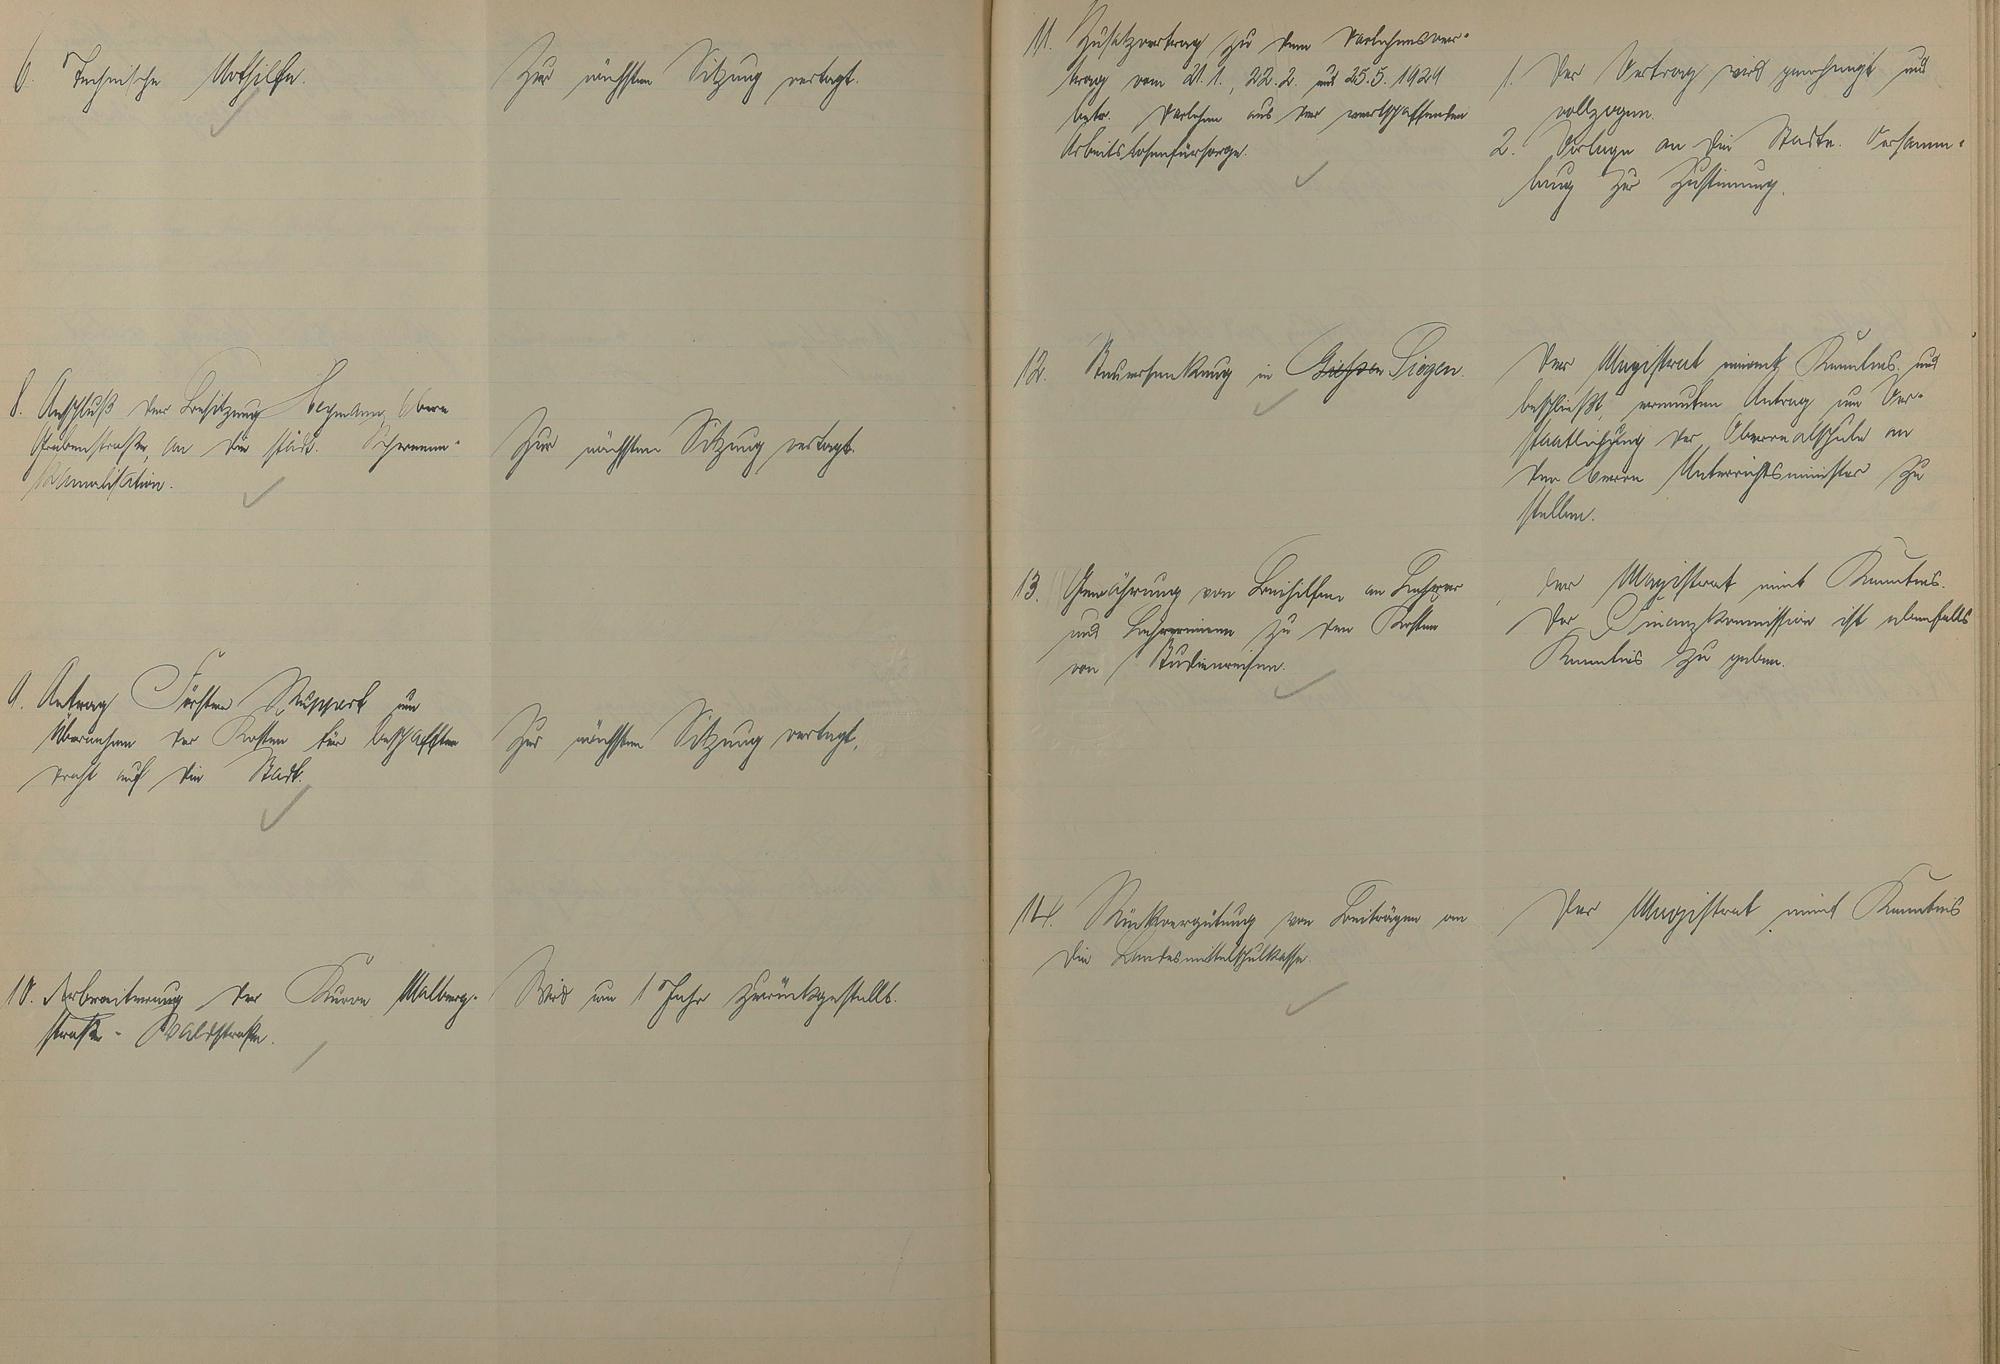 6. Technische Nothilfe.
Zur nächsten Sitzung vertagt.
8. Anschluß der Besitzung Hegmann, Obere
Grabenstraße, an die städt. Schwemm-
kanalisation.
Zur nächsten Sitzung vertagt.
9. Antrag Förster Ruppert um
Übernahme der Kosten für beschafften
Draht auf die Stadt.
Zur nächsten Sitzung vertagt.
10. Verbreiterung der Kurve Malberg-
straße - Waldstraße.
Wird um 1 Jahr zurückgestellt.
11. Zusatzvertrag zu dem Darlehnsver-
trag vom 21.1., 22.2. und 25.5.1921
betr. Darlehen aus der wertschaffenden
Arbeitslosenfürsorge.
1. Der Vertrag wird genehmigt und
vollzogen.
2. Vorlage an die Stadtv. Versamm-
lung zur Zustimmung.
12. Steuersenkung in Giessen Siegen.
Der Magistrat nimmt Kenntnis und
beschließt, erneuten Antrag um Ver-
staatlichung der Oberrealschule an
den Herrn Unterrichtsminister zu
stellen.
13. Gewährung von Beihilfen an Lehrer
und Lehrerinnen zu den Kosten
von Studienreisen.
Der Magistrat nimt Kenntnis.
Der Finanzkommission ist ebenfalls
Kenntnis zu geben.
14. Rückvergütung von Beiträgen an
die Landesmittelschulkasse.
Der Magistrat nimt Kenntnis